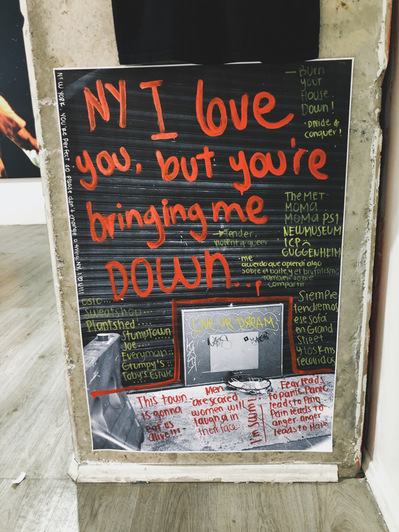 NY I love
you, but you're
bringing me
DOWN...,
Burn
your
House
Down!
- Divide &
conquer!
THE MET
MOMA
MOMA PS1
NEW MUSEUM
ICP
GUGGENHEIM
me
acuerdo que aprendí algo
sobre el baile y el
también sobre
compartir
sweatshop...
Plantshed...
Stumptown
Joe...
Everyman...
Grumpy's...
Toby's Estate
LIVE UR DREAM
Siempre
tendremos
ese sofá
en Grand
Street
y los kms
recorridos
This town
is gonna
eat us
alive!!!
Men
are scared
women will
laugh at in
their face
In Sum:
Fear leads
to panic. Panic
leads to Pain
Pain leads to
anger. anger
leads to Hate